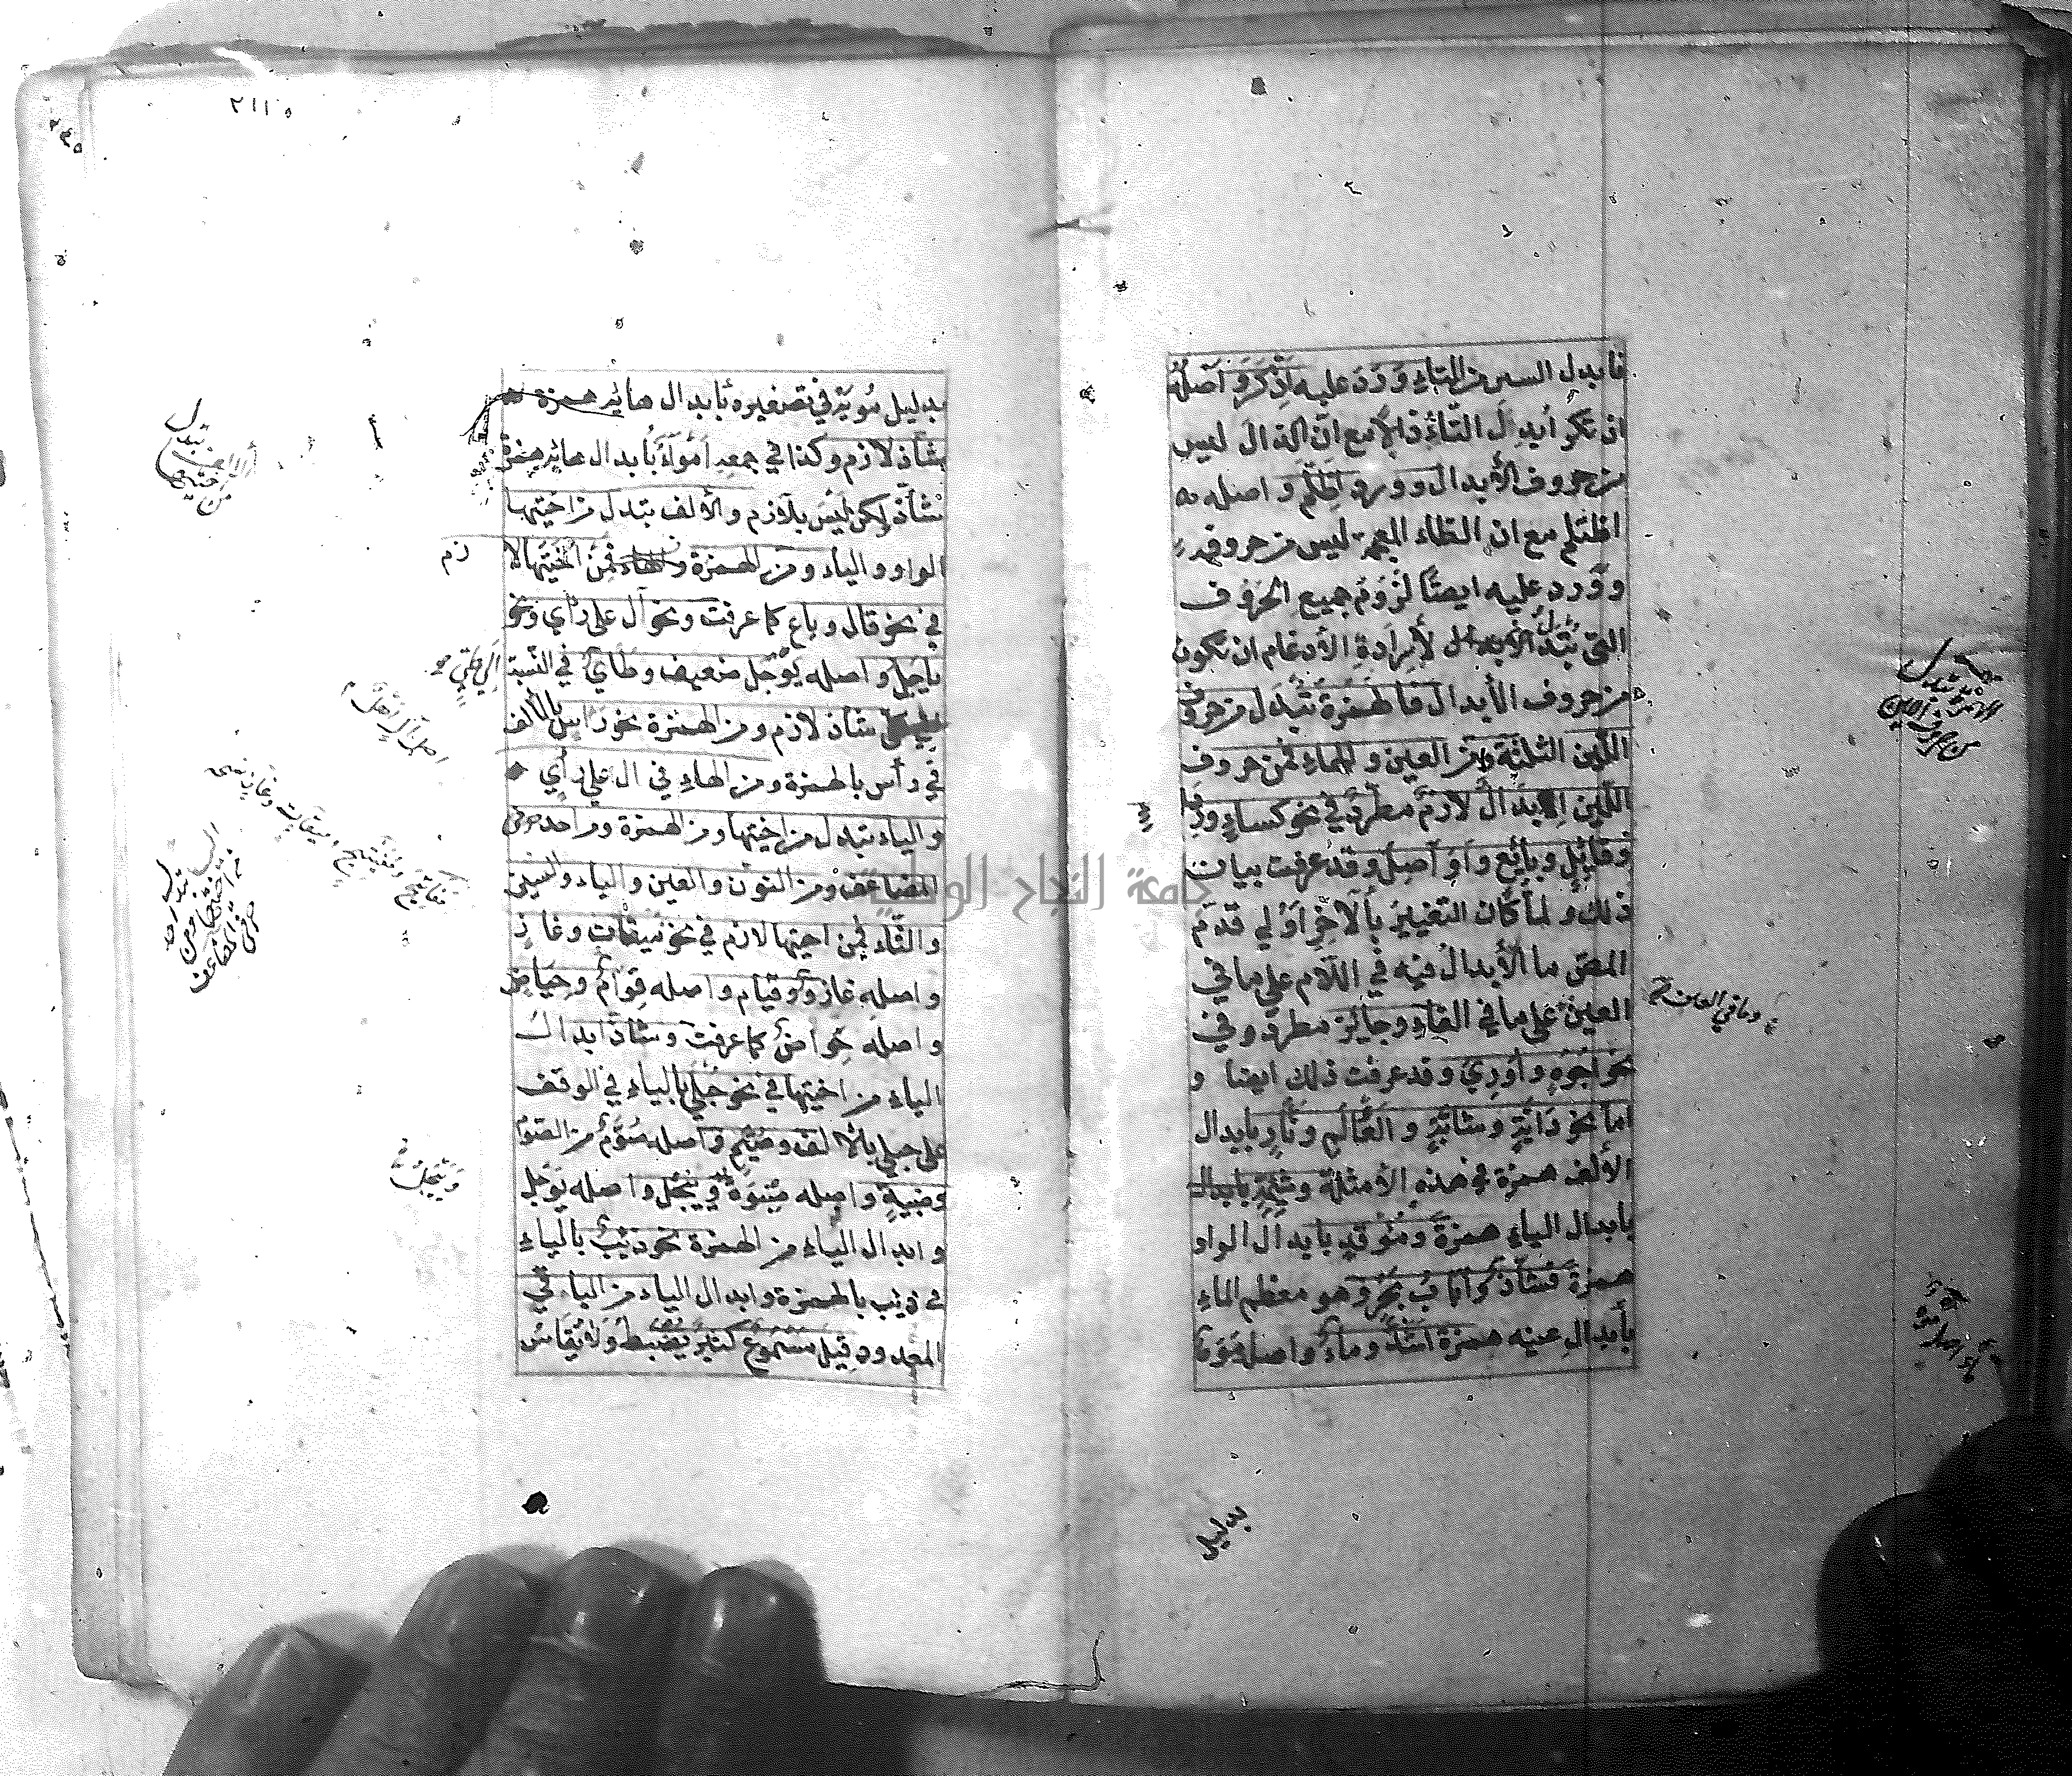 فابدل السين من التاء وَوَرَدَ عليه اذَّكَرَ واَصلُهُ
اذتكر اُبدِلَ التاءُ ذالاً مع ان الذال ليس
من حروف الأبدال وورد اظّلَمَ واصله
اظتلم مع ان الظاء المعجمة ليس من حروفه
ووَرد عليه ايضًا لُزُوم جميع الحروف
التي تُبْدَلُ لأرادةِ الأدغام ان تكون
من حروف الأبدال فالهمزة تُبْدَل من حروف
اللين الثلثة ومن العين والهاء فمن حروف
اللين ابدالٌ لازمٌ مطردٌ في نحو كساءٍ وردا
وقائلٍ وبائعٍ واَوَاصِل وقد عرفت بيان
ذلك ولما كان التغيير بالآخر اَوْلى قدّم
المص ما الأبدال فيه في اللام على ما في
العين على ما في الفاء وجائز مطرد في
نحو اُجُوهٍ واُوْرِيَ وقد عرفت ذلك ايضا و
اما نحو دَابَّةٍ وشَابَّةٍ والعَالَم وبَازٍ بابدال
الألف همزة في هذه الأمثلة وشِئمةٍ بابدال
بابدال الياء همزة ومُؤقدٍ بابدال الواو
همزة فشاذ واُبَابُ بَحْرٍ وهو معظم الماءِ
بأبدالِ عينه همزة اَشَذُّ وماءٌ واصله مَوَهٌ
بدليل
الهمزة تبدل
من حروف اللين
وما في العين
ماء اصله موه
٢١١٥
بدليل مُوَيْهٍ في تصغيره بأبدال هائه همزة
شاذ لازم وكذا في جمعه اَمْواء بأبدال هائه همزة
شاذ لكن ليس بلازم والألف تبدل من اختيها
الواو والياء ومن الهمزة والهاء فمِنْ اُخْتَيْها لا زم
في نحو قال وباع كما عرفت ونحو آل على رأي ونحو
ياجَل واصله يَوْجَل ضعيف وطَائيٌّ في النسبة
الى طيّئٍ
شاذ لازم ومن الهمزة نحو راس بالألف
في رأس بالهمزة ومن الهاء في ال على رأي
والياء تبدل من اختيها ومن الهمزة ومن احد حرفي
المضاعف ومن النون والعين والباء والسين
والثاء فمن اختيها لازم في نحو مِيقات وغازٍ
واصله غازِوٌ وقيام واصله قِوامٌ وحِياض
واصله حِوَاضٌ كما عرفت وشاذ ابدال
الياء من اختيها في نحو حُبْلَي بالياء في الوقف
على حبلى بالألف وصُيَّمٍ واصله صُوَّمٌ من الصَّوْم
وصِبيةٍ واصله صِبْوَةٌ ويَيْجَلُ واصله يَوْجَلُ
وابدال الياء من الهمزة نحو ذِيْب بالياءِ
في ذئب بالهمزة وابدال الياء من الباقي
المعدود قيل مسموعٌ كثيرٌ يُضبطُ ولا يُقاسُ
الالف تبدل
من اختيها
اصل آل اَهْلٌ
الياء تبدل
من اختيها ومن احد
حرفي المضاعف